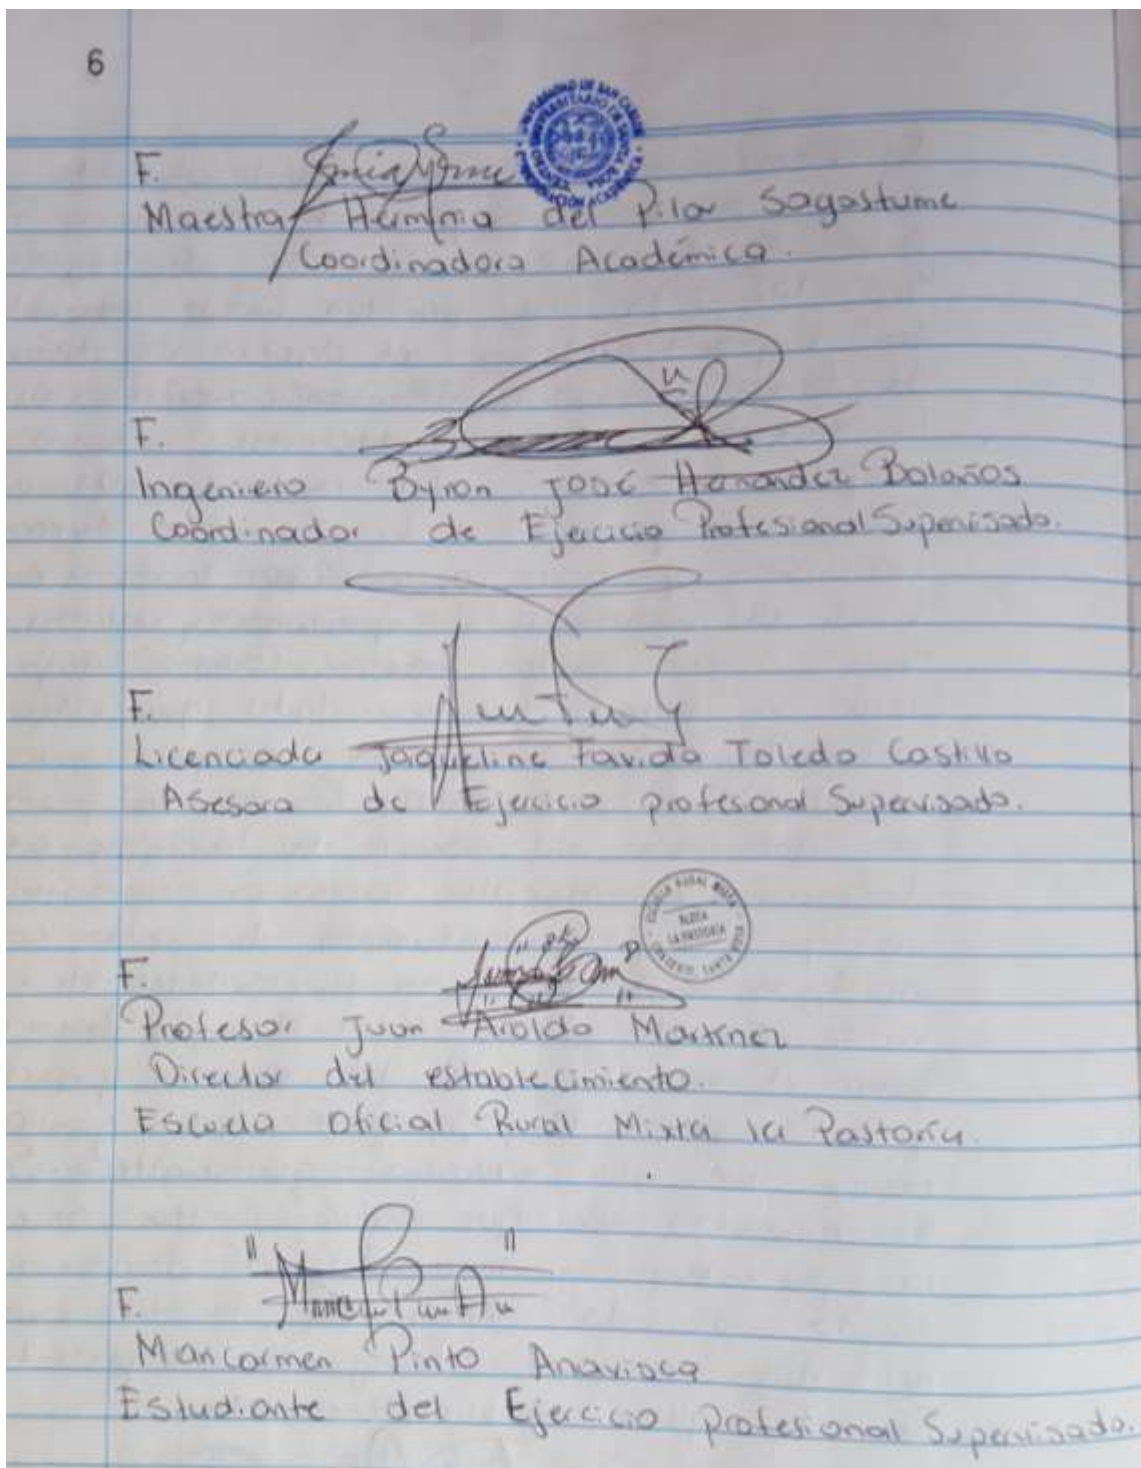 6
UNIVERSIDAD DE SAN CARLOS
F.
Maestra Herminia del Pilar Sagastume
Coordinadora Académica.
F.
Ingeniero Byron José Hernández Bolaños
Coordinador de Ejercicio Profesional Supervisado.
F.
Licenciada Jaqueline Favida Toledo Castillo
Asesora de Ejercicio profesional Supervisado.
ESCUELA RURAL MIXTA
ALDEA
LA PASTORIA
SANTA ROSA
F.
Profesor Juan Aroldo Martínez
Director del establecimiento.
Escuela Oficial Rural Mixta la Pastoría.
F.
Maricarmen Pinto
Estudiante del Ejercicio profesional Supervisado.